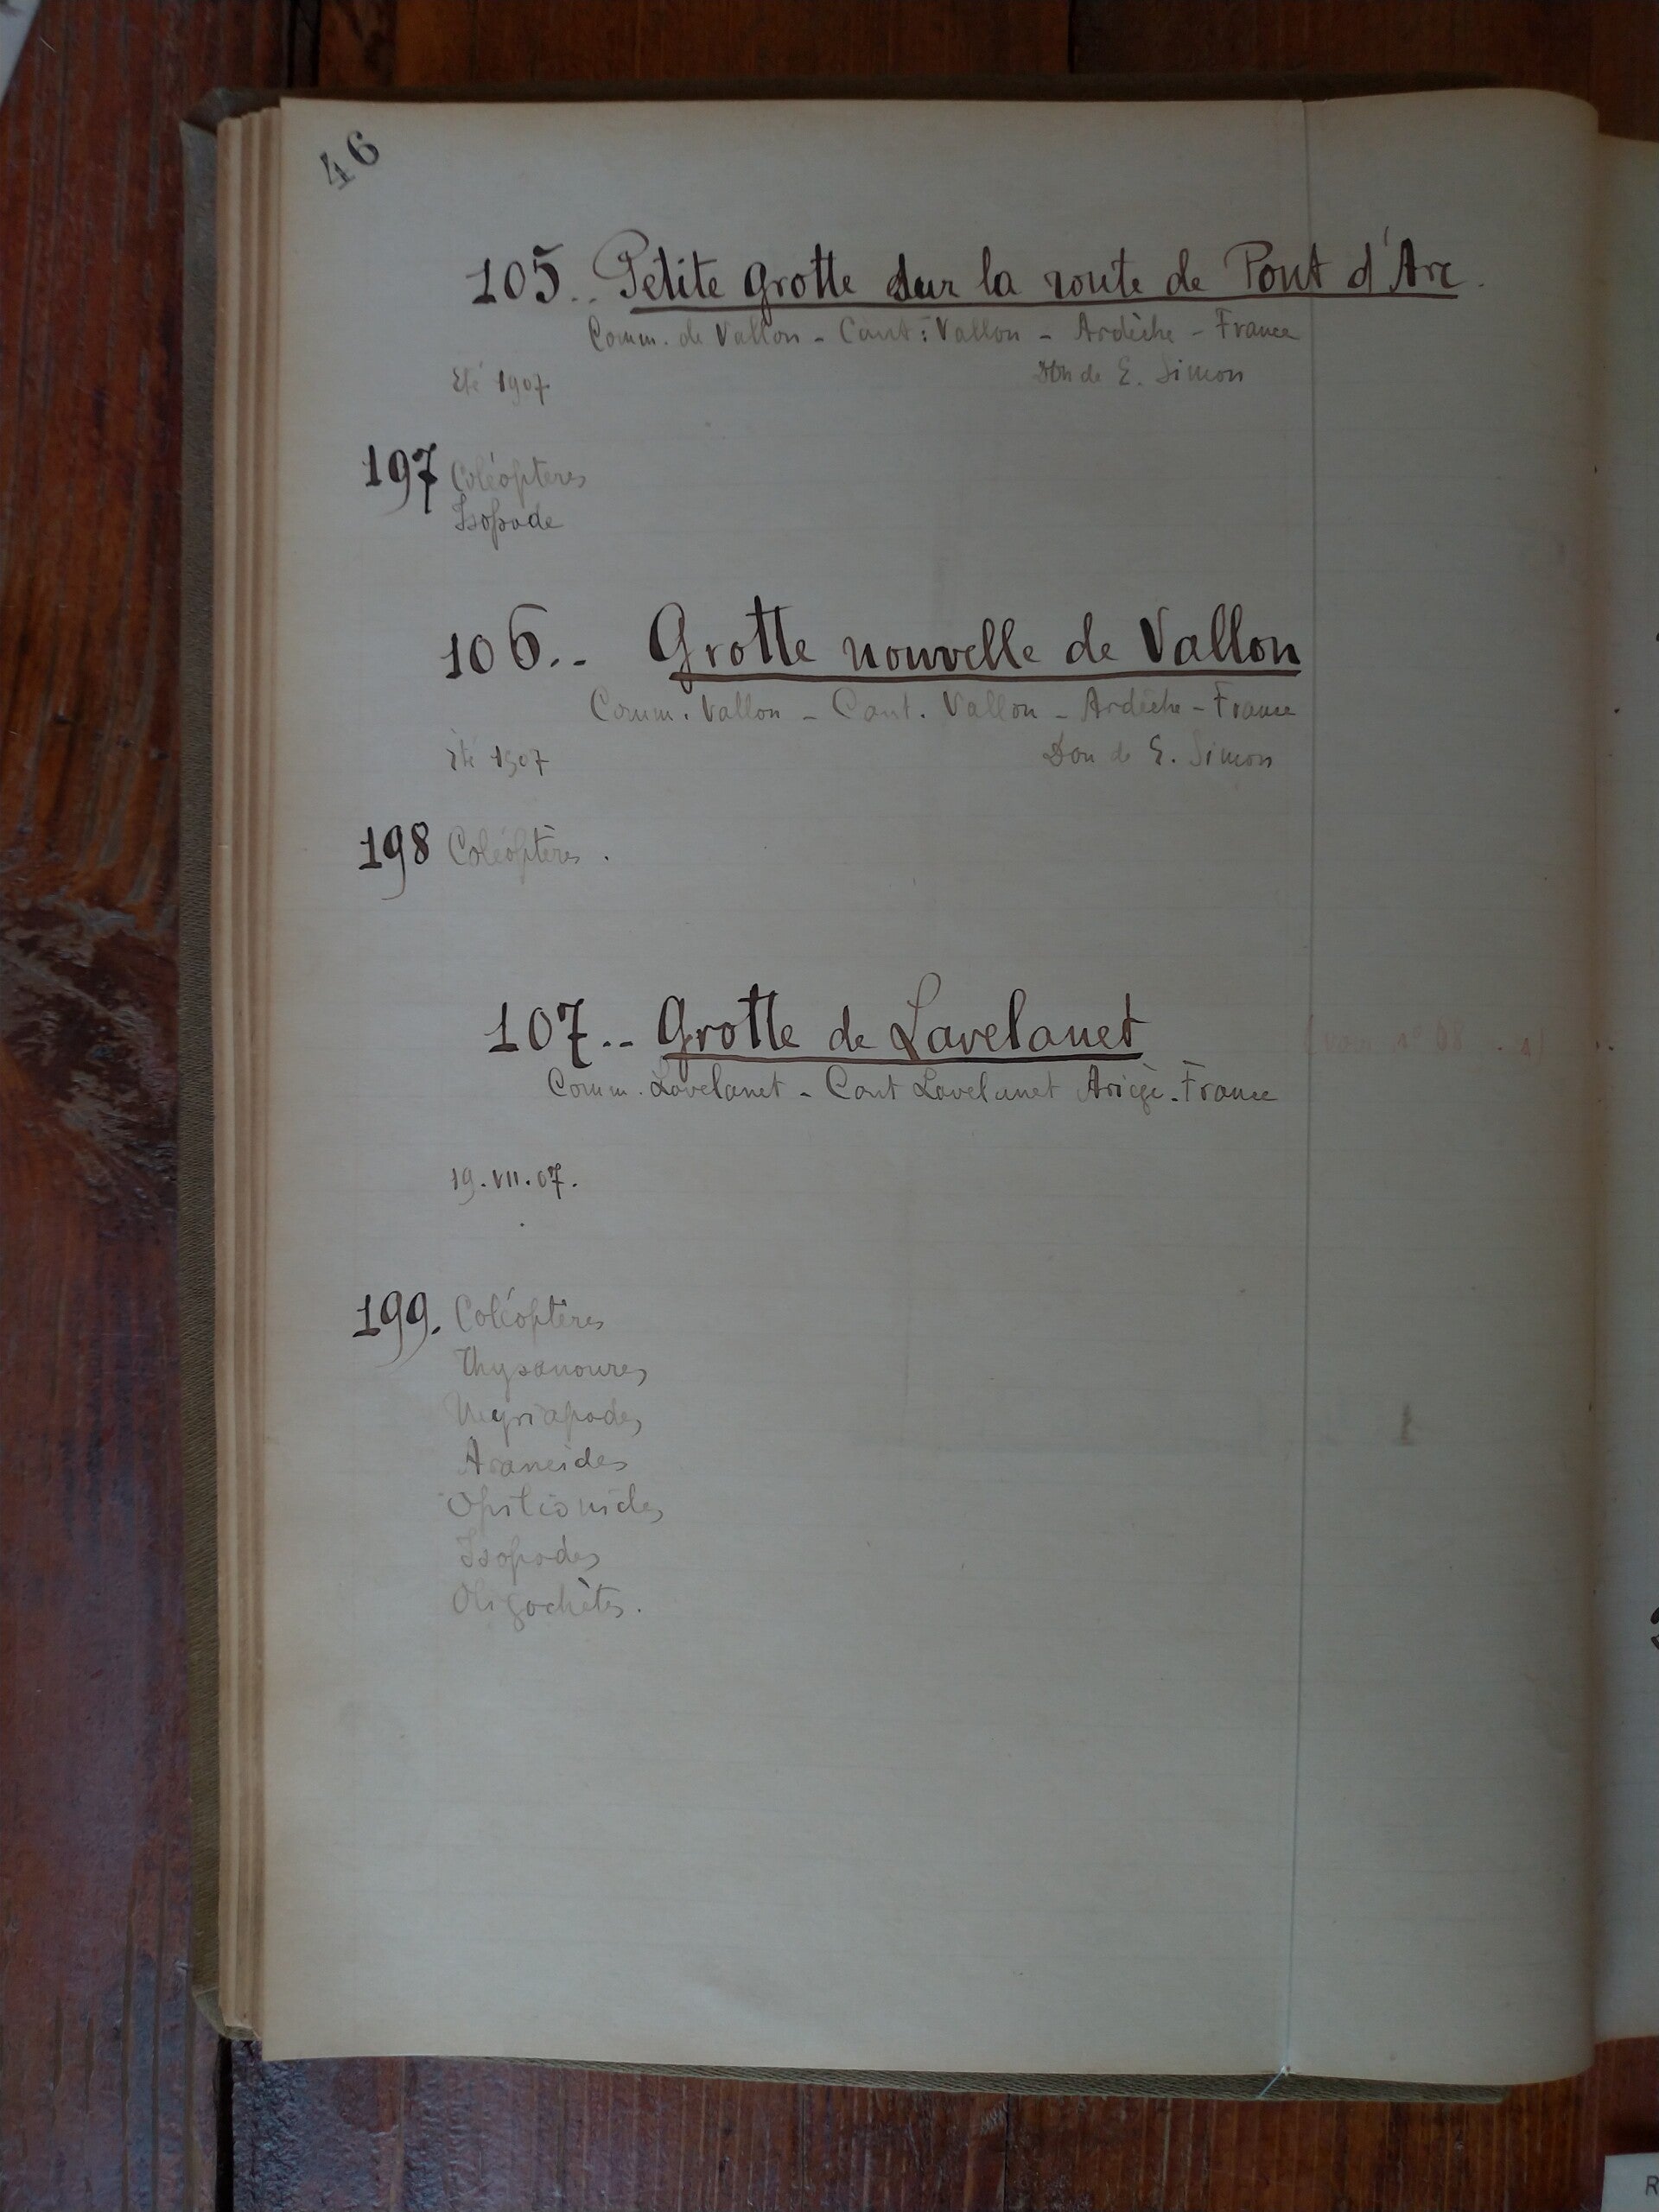 46
105.. Petite Grotte sur la route de Pont d'Arc.
Comm. de Vallon - Cant: Vallon - Ardèche - France
Eté 1907. Don de E. Simon
197 Coléoptères
Isopode
106.. Grotte nouvelle de Vallon
Comm. Vallon - Cant. Vallon - Ardèche - France
Eté 1907 Don de E. Simon
198 Coléoptères.
107.. Grotte de Lavelanet
Comm. Lavelanet - Cant Lavelanet Ariège. France
19.VII.07.
199. Coléoptères
Thysanoures
Myriapodes
Araneides
Opilionides
Isopodes
Oligochètes.
R